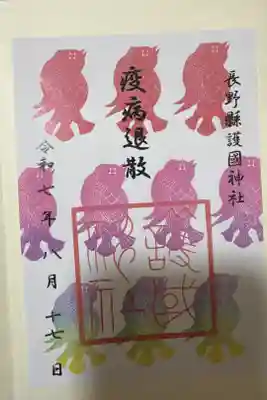 長野縣護國神社
疫病退散
令和七年八月十七日